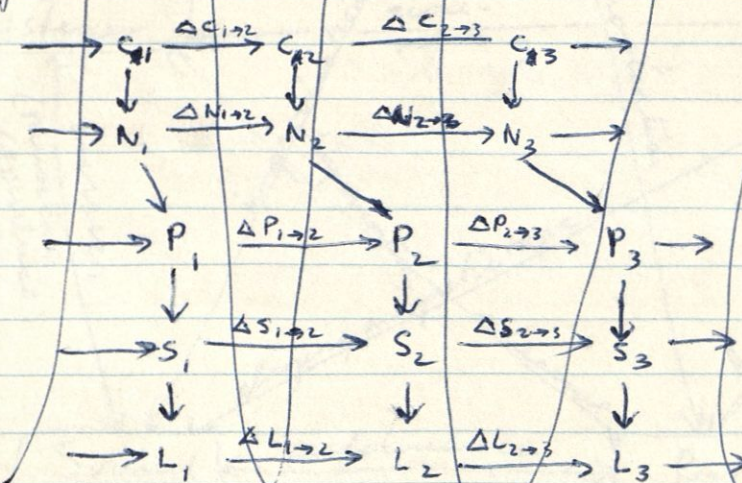 → C1 ΔC1→2 → C2 ΔC2→3 C3 →
→ N1 ΔN1→2 → N2 ΔN2→3 → N3 →
→ P1 ΔP1→2 → P2 ΔP2→3 → P3 →
→ S1 ΔS1→2 → S2 ΔS2→3 → S3 →
→ L1 ΔL1→2 → L2 ΔL2→3 → L3 →